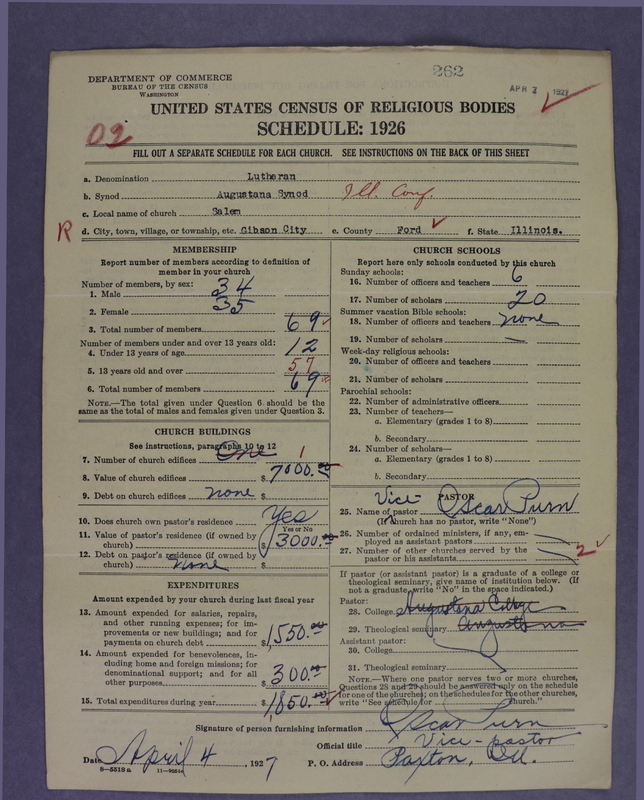 262
APR 7 1927
DEPARTMENT OF COMMERCE
BUREAU OF THE CENSUS
WASHINGTON
UNITED STATES CENSUS OF RELIGIOUS BODIES
SCHEDULE: 1926
02
FILL OUT A SEPARATE SCHEDULE FOR EACH CHURCH. SEE INSTRUCTIONS ON THE BACK OF THIS SHEET
a. Denomination Lutheran
b. Synod Augustana Synod Ill. Conf.
c. Local name of church Salem
R d. City, town, village, or township, etc. Gibson City e. County Ford f. State Illinois.
MEMBERSHIP
Report number of members according to definition of
member in your church
Number of members, by sex:
1. Male 34
2. Female 35
3. Total number of members 69
Number of members under and over 13 years old:
4. Under 13 years of age 12
5. 13 years old and over 57
6. Total number of members 69
NOTE.—The total given under Question 6 should be the
same as the total of males and females given under Question 3.
CHURCH BUILDINGS
See instructions, paragraphs 10 to 12
7. Number of church edifices One 1
8. Value of church edifices $ 7000.00
9. Debt on church edifices none $
10. Does church own pastor's residence Yes
Yes or No
11. Value of pastor's residence (if owned by
church) $ 3000.00
12. Debt on pastor's residence (if owned by
church) None $
EXPENDITURES
Amount expended by your church during last fiscal year
13. Amount expended for salaries, repairs,
and other running expenses; for im-
provements or new buildings; and for
payments on church debt $ 1,550.00
14. Amount expended for benevolences, in-
cluding home and foreign missions; for
denominational support; and for all
other purposes $ 300.00
15. Total expenditures during year $ 1,850.00
CHURCH SCHOOLS
Report here only schools conducted by this church
Sunday schools:
16. Number of officers and teachers 6
17. Number of scholars 20
Summer vacation Bible schools:
18. Number of officers and teachers none
19. Number of scholars —
Week-day religious schools:
20. Number of officers and teachers
21. Number of scholars
Parochial schools:
22. Number of administrative officers
23. Number of teachers—
a. Elementary (grades 1 to 8)
b. Secondary
24. Number of scholars—
a. Elementary (grades 1 to 8)
b. Secondary
Vice- PASTOR
25. Name of pastor Oscar Purn
(If church has no pastor, write "None")
26. Number of ordained ministers, if any, em-
ployed as assistant pastors
27. Number of other churches served by the
pastor or his assistants 2
If pastor (or assistant pastor) is a graduate of a college or
theological seminary, give name of institution below. (If
not a graduate, write "No" in the space indicated.)
Pastor:
28. College Augustana College
29. Theological seminary Augustana
Assistant pastor:
30. College
31. Theological seminary
NOTE.—Where one pastor serves two or more churches,
Questions 28 and 29 should be answered only on the schedule
for one of the churches; on the schedules for the other churches,
write "See schedule for Church."
Signature of person furnishing information Oscar Purn
Official title Vice-pastor
Date April 4, 1927 P. O. Address Paxton, Ill.
8—5518a